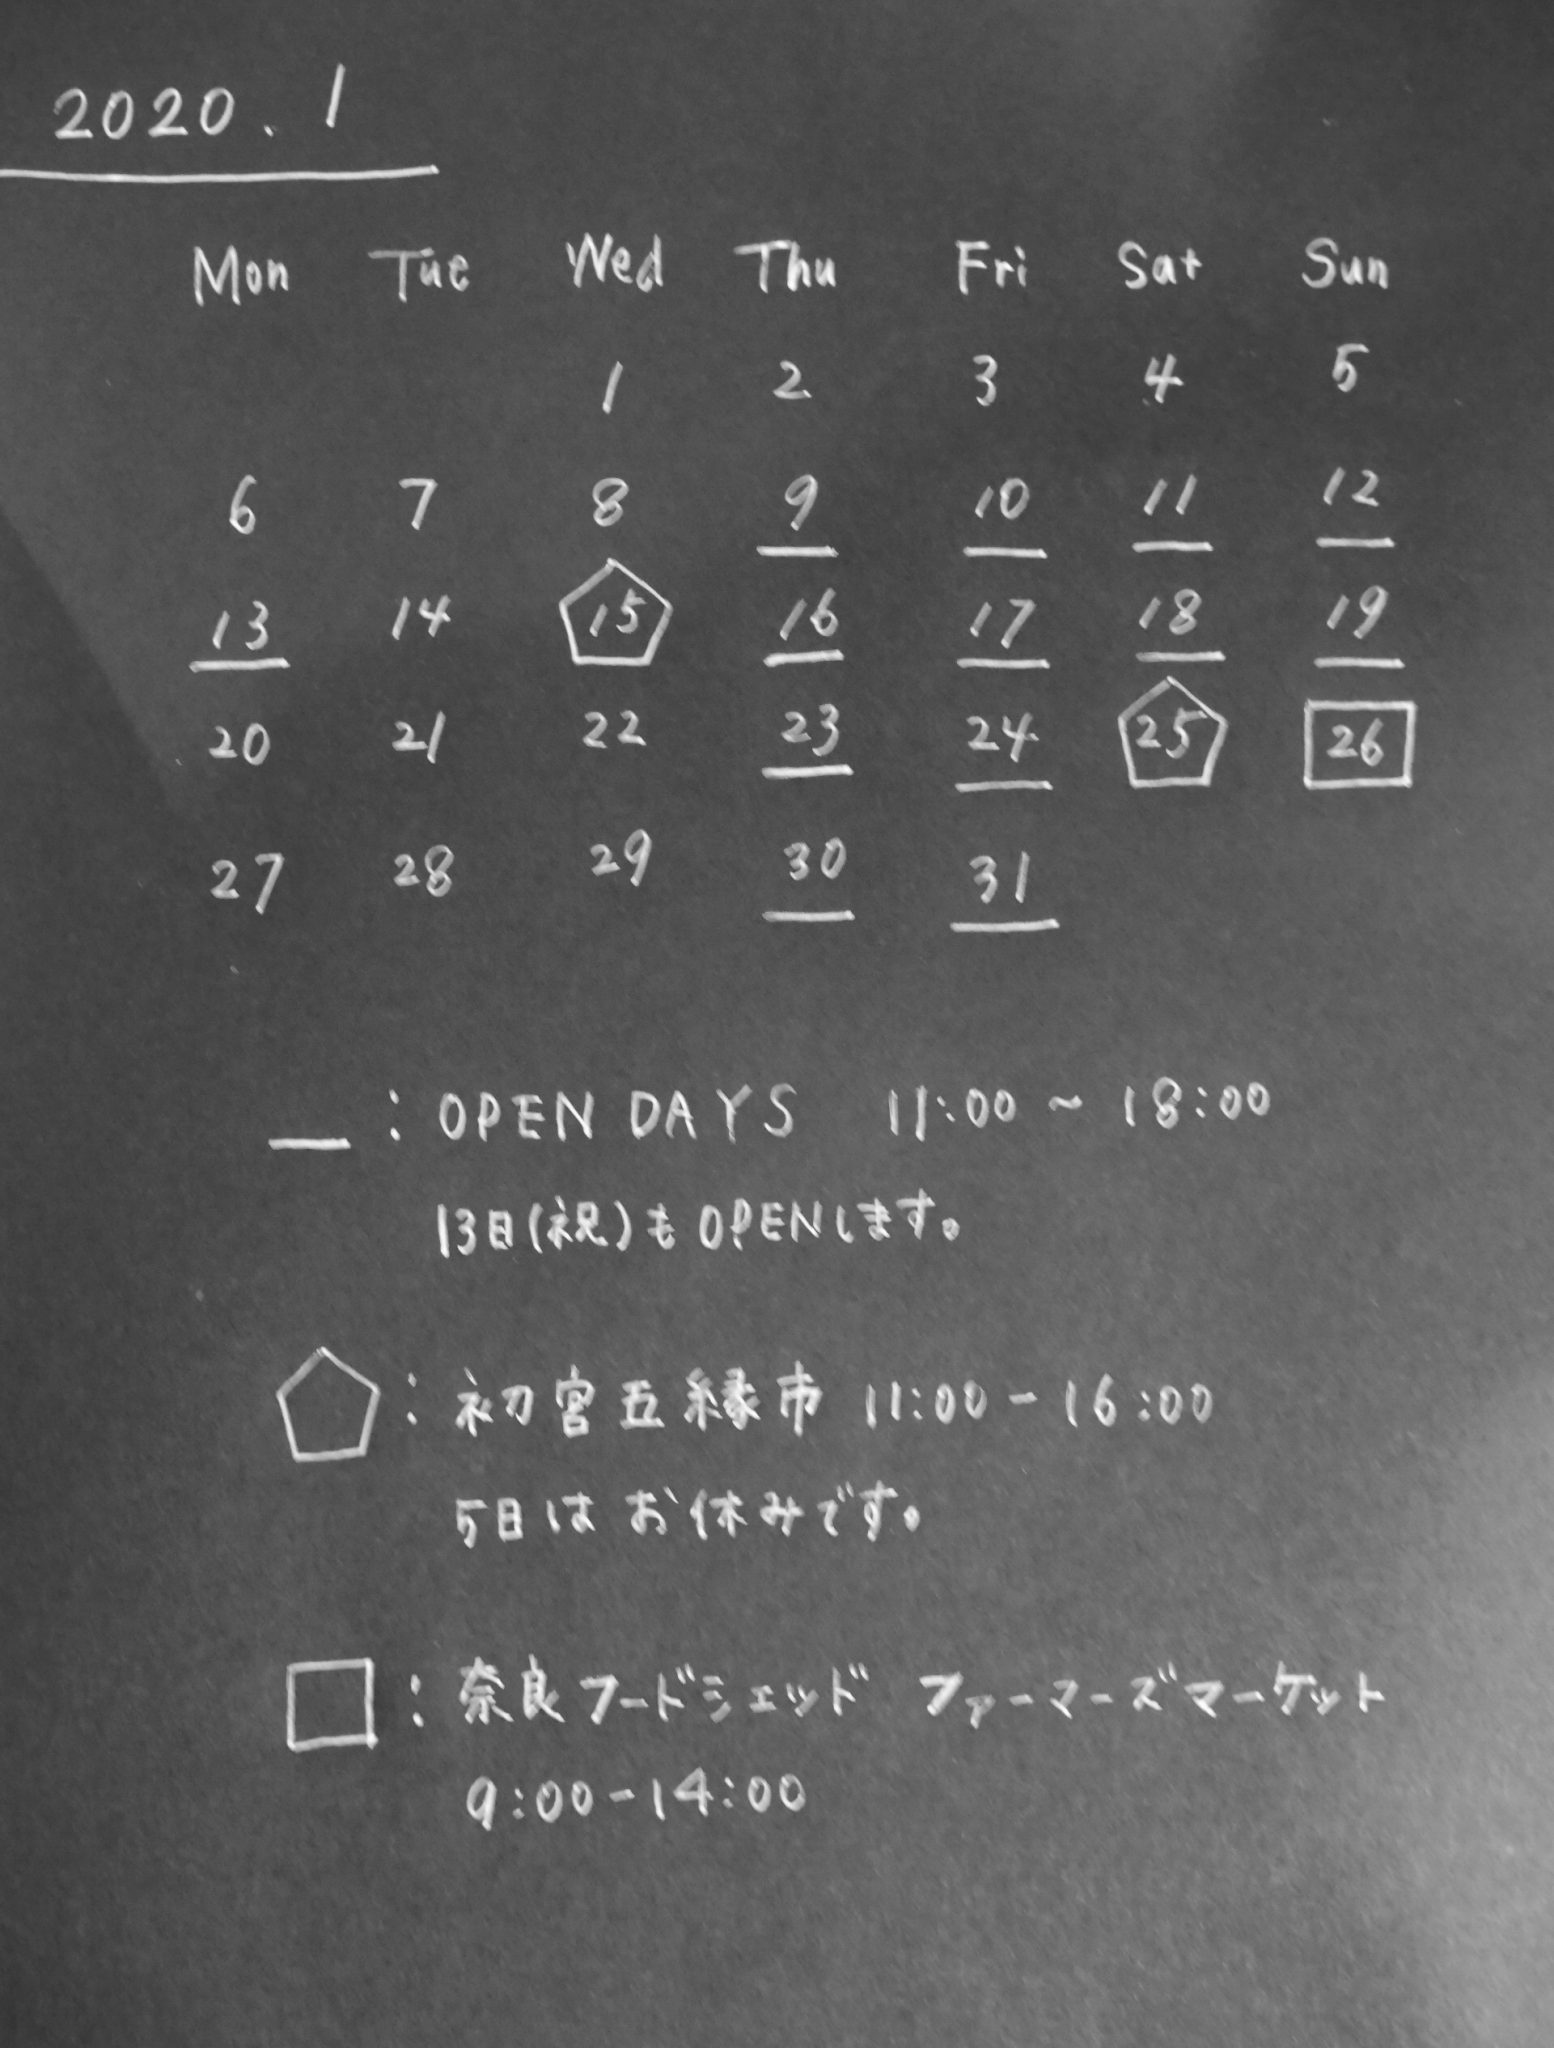 2020.1
Mon Tue Wed Thu Fri Sat Sun
1 2 3 4 5
6 7 8 9 10 11 12
13 14 15 16 17 18 19
20 21 22 23 24 25 26
27 28 29 30 31
: OPEN DAYS 11:00 ~ 18:00
13日(祝)もOPENします。
: 初宮五縁市 11:00 - 16:00
5日は お休みです。
: 奈良フードシェッド ファーマーズマーケット
9:00-14:00